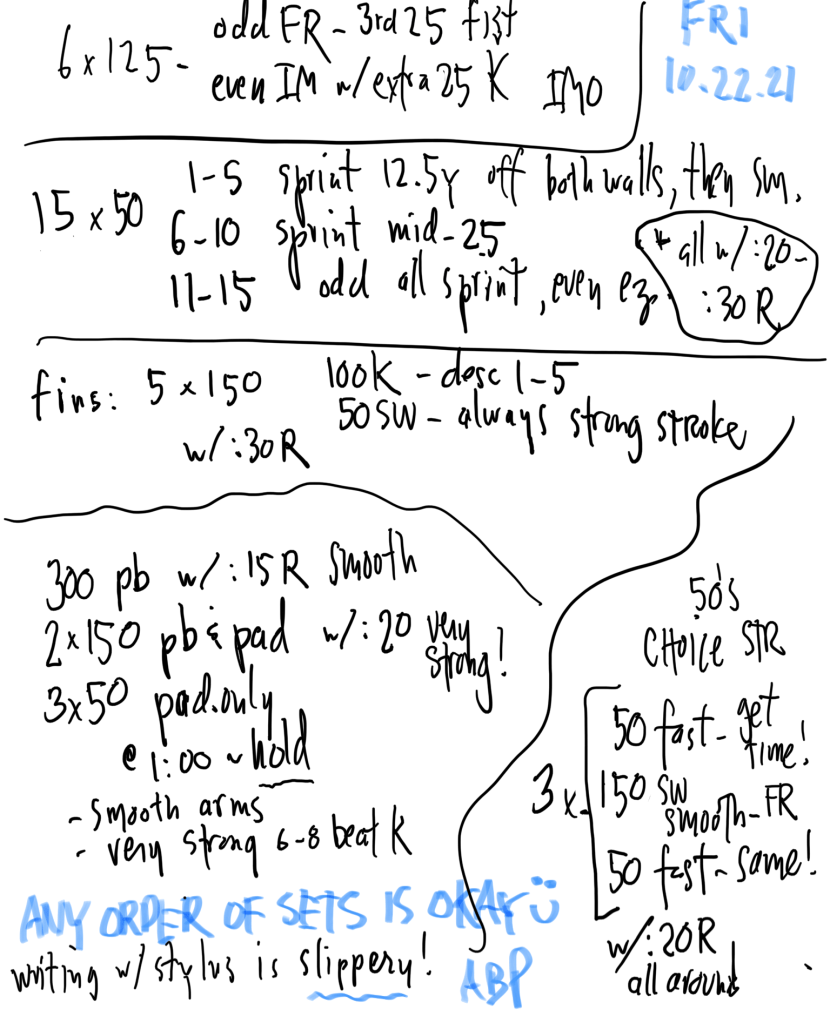 6x125- odd FR - 3rd 25 fist
even IM w/extra 25 K IMO
FRI
10.22.21
15 x 50
1-5 sprint 12.5y off both walls, then sm.
6-10 sprint mid-25
11-15 odd all sprint, even ez.
* all w/:20-
:30 R
fins: 5 x 150
w/:30R
100K - desc 1-5
50 SW - always strong stroke
300 pb w/:15 R smooth
2x150 pb & pad w/:20 very strong!
3x50 pad.only
@ 1:00 ~ hold
- smooth arms
- very strong 6-8 beat K
50's
CHOICE STR
3x
50 fast - get time!
150 SW smooth-FR
50 fast - same!
w/:20R
all around
ANY ORDER OF SETS IS OKAY Ü
writing w/stylus is slippery!
ABP